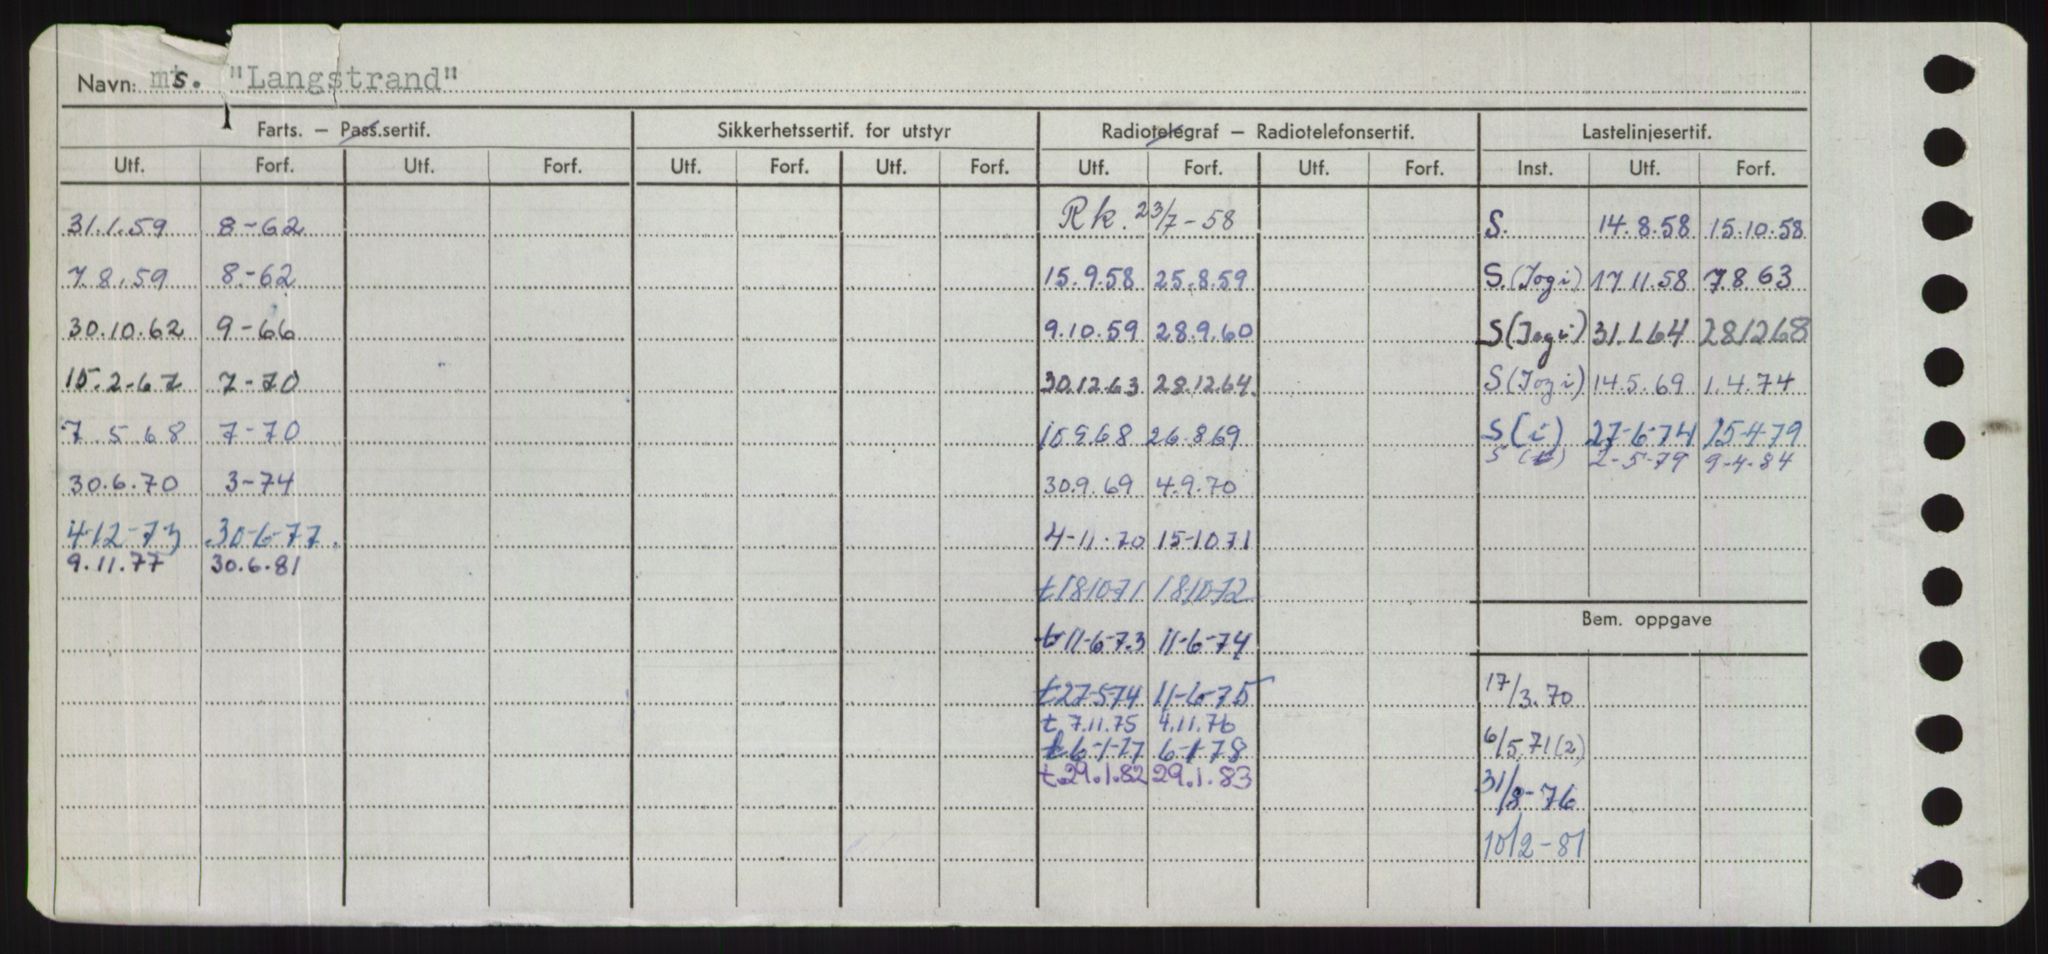 Navn: ms. "Langstrand"
Farts. – Pass.sertif. Sikkerhetssertif. for utstyr Radiotelegraf – Radiotelefonsertif. Lastelinjesertif.
Utf. Forf. Utf. Forf. Utf. Forf. Utf. Forf. Utf. Forf. Utf. Forf. Inst. Utf. Forf.
31.1.59 8-62 Rk. 23/7-58 S. 14.8.58 15.10.58
7.8.59 8-62 15.9.58 25.8.59 S.(Jogi) 17.11.58 7.8.63
30.10.62 9-66 9.10.59 28.9.60 S(Jogi) 31.1.64 281268
15.2.67 7-70 30.12.63 28.12.64. S(Jogi) 14.5.69 1.4.74
7.5.68 7-70 10.9.68 26.8.69 S(i) 27-6-74 15-4-79
S 2-5-79 9-4-84
30.6.70 3-74 30.9.69 4.9.70
4-12-73 30-6-77. 4-11-70 15-1071
9.11.77 30.6.81
t18-10-71 18-10-72
Bem. oppgave
t11-6-73 11-6-74
t27-5-74 11-6-75 17/3.70
t 7.11.75 4.11.76
t6-1-77 6-1-78 6/5.71(2)
t.29.1.82 29.1.83
31/8-76
10/2-81